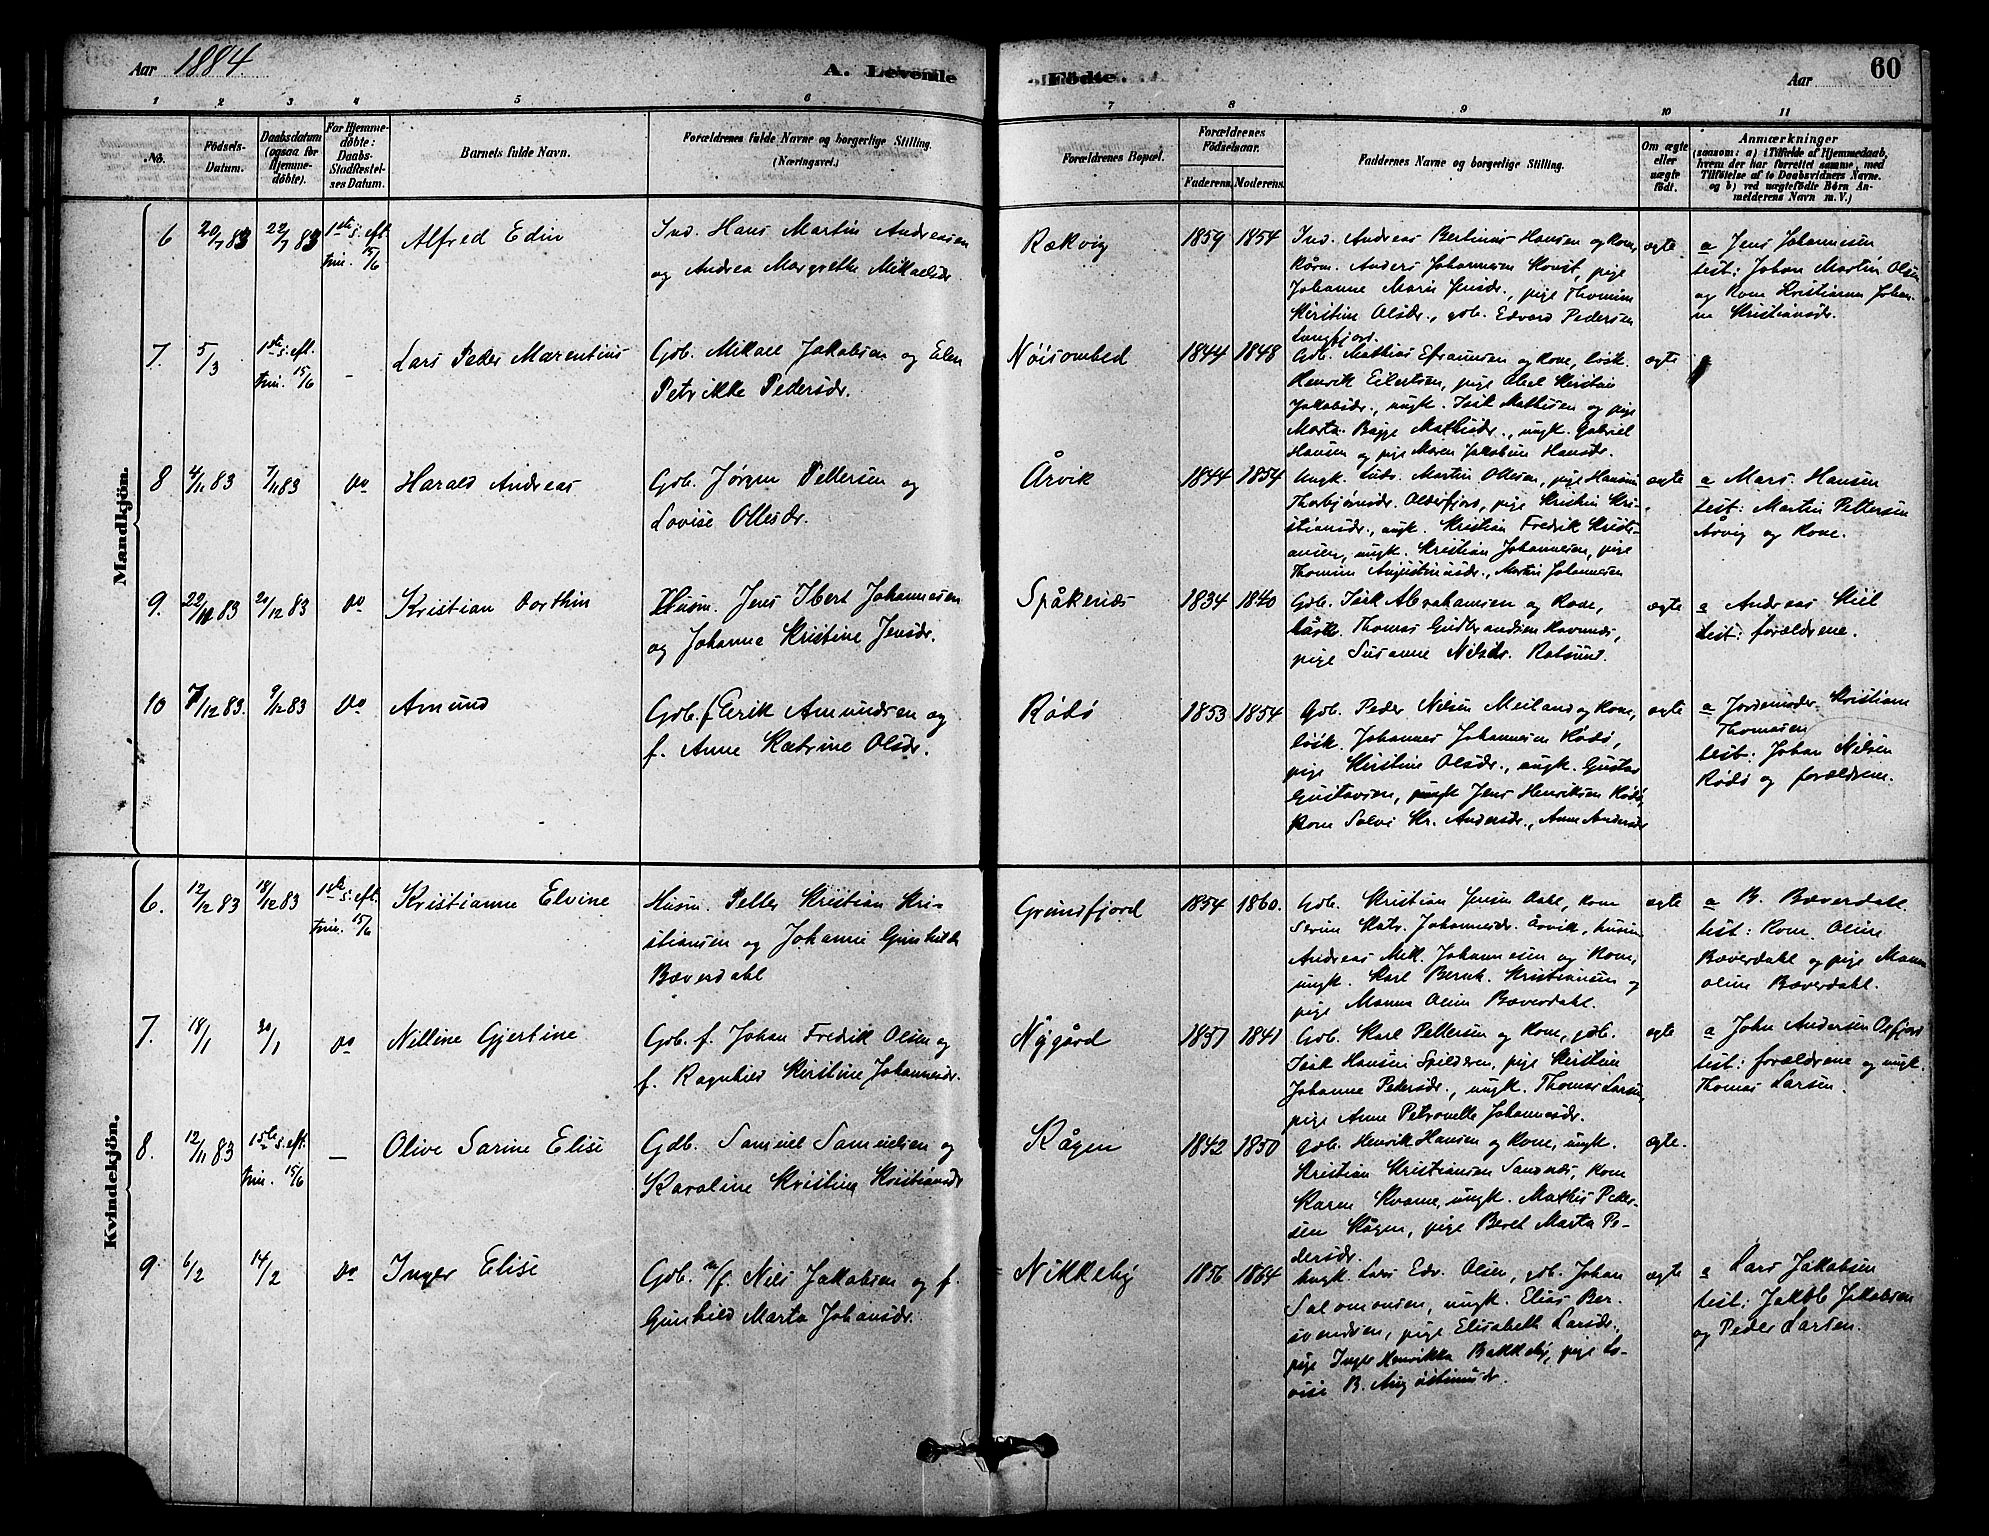 Aar 1884
A. Levende
Födte.
Aar
60
1 2 3 4 5 6 7 8 9 10 11
No.
Födsels-
Datum.
Daabsdatum
(ogsaa for
Hjemme-
döbte).
For Hjemme-
döbte:
Daabs-
Stadfæstel-
ses Datum.
Barnets fulde Navn.
Forældrenes fulde Navne og borgerlige Stilling.
(Næringsvei.)
Forældrenes Bopæl.
Forældrenes
Födselsaar.
Faderens. Moderens.
Faddernes Navne og borgerlige Stilling.
Om ægte
eller
uægte
födt.
Anmærkninger
(saasom: a) i Tilfælde af Hjemmedaab,
hvem der har forrettet samme, med
Tilföielse af to Daabsvidners Navne.
og b) ved uægtefödte Börn An-
melderens Navn m. V.)
Mandkjön.
6 20/7 83 22/7 83 1ste s. eft.
trin. 15/6
Alfred Edin
Ind. Hans Martin Andreasen
og Andrea Margrethe Mikaelsdr.
Rækvig
1859 1854
Ind. Andreas Bertinus Hansen og kone,
Anders Johannesen
Johanne Marie Jensdr., pige
Kirstine Olsdr., gdb. Edvard Pedersen
Lungfjord.
ægte
a Jens Johannesen
test: Johan Martin Olsen
og Kone Kristianna Johan-
ne Kristiansdr.
7. 5/3 1ste s. eft.
trin. 15/6 -
Lars Peder Marentius
Gdb. Mikael Jakobsen og Elen
Petrikke Pedersdr.
1844 1848
Gdb. Mathias Efraimsen og Kone, løsk.
Henrik Eilertsen, pige Kristine
Jakobsdr., ungk. Isak Mathisen og pige
Marta Mathisdr., ungk. Gabriel
Hansen og pige Maren Jakobine Hansdr.
ægte
8 4/11 83 7/11 83 Do
Harald Andreas
Gdb. Jørgen Pettersen og
Lovise Ollesdr.
Årvik
1844 1854
Ungk. Martin Ollesen, pige
Olderfjord, pige Kristin Kri-
stiansdr., ungk. Kristian Fredrik Kristi-
ansen, ungk. Kristian Johannesen, pige
Thomine Augustinusdr., Martin Johannesen
ægte
a Mars. Hansen
test: Martin Pettersen
Årvig og Kone.
9. 22/11 83 20/12 83 Do
Kristian Dorthin
Husm. Jens Ibert Johannesen
og Johanne Kristine Jensdr.
Spåkenæs
1834 1840
Gdb. Isak Abrahamsen og Kone,
Thomas Gudbrandsen
pige Susanne Nilsdr. Rotsund.
ægte
a Andreas Kiil
test: forældrene.
10 7/12 83. 9/12 83 Do
Amund
Gdb. f. Erik Amundsen og
f. Anne Katrine Olsdr.
Rødø
1853 1854
Gdb. Peder Nilsen Meiland og Kone,
løsk. Johannes Johannesen Rødø,
pige Kirstine Olsdr., ungk. Gustav
Gustavsen, ungk Jens Henriksen Rødø,
kone Solvi Kr. Andersdr., Anne Andersdr
ægte
a Jordemoder Kristiane
Thomasen
test: Johan Nilsen
Rødø og forældrene.
Kvindekjön.
6. 12/12 83 18/12 83 1ste s. eft.
trin. 15/6
Kristianne Elvine
Husm. Petter Kristian Kri-
stiansen og Johanne Gunhilda
Bæverdahl
Grundfjord
1854 1860.
Gdb. Kristian Jensen Dahl, kone
Serine Katr. Johannesdr. Årvik, husm
Andreas Mik. Johannesen og Kone,
ungk. Karl Bernh. Kristiansen og
pige Manna Oline Bæverdahl.
ægte
a B. Bæverdahl.
test: Kone Oline
Bæverdahl og pige Manna
Oline Bæverdahl.
7. 18/1 20/1 Do
Nilline Gjertine
Gdb. f. Johan Fredrik Olsen og
f. Ragnhild Kirstine Johannesdr.
Nygård
1837 1841
Gdb. Karl Pettersen og Kone, gdb.
Isak Hansen Spilderen, pige Kirstine
Johanne Pedersdr., ungk. Thomas Larsen,
pige Anne Petronelle Johannesdr.
ægte
a John Andersen Oxfjord
test: forældrene og ungk.
Thomas Larsen.
8. 12/11 83 15de s. eft.
trin. 15/6 -
Olive Sarine Elise
Gdb. Samuel Samuelsen og
Karoline Kristine Kristiansdr
Kågen
1842 1850
Gdb. Henrik Hansen og Kone, ungk.
Kristian Kristiansen Sandnes, kone
Karen Kvæne, ungk. Mathis Peder-
sen Kågen, pige Beret Marta Pe-
dersdr.
ægte.
9 6/2 14/2 Do
Inger Elise
Gdb. n/f. Nils Jakobsen og f.
Gunhild Marta Johansdr.
Nikkeby
1856 1864
Ungk. Lars Edv. Olsen, gdb. Johan
Salomonsen, ungk. Elias Ber.
svendsen, pige Elisabeth Larsdr.
pige Inger Henrikka Bakkeby, pige Lo-
vise B. Augustinusdr.
ægte
a Lars Jakobsen
test: Jakob Jakobsen
og Peder Larsen.